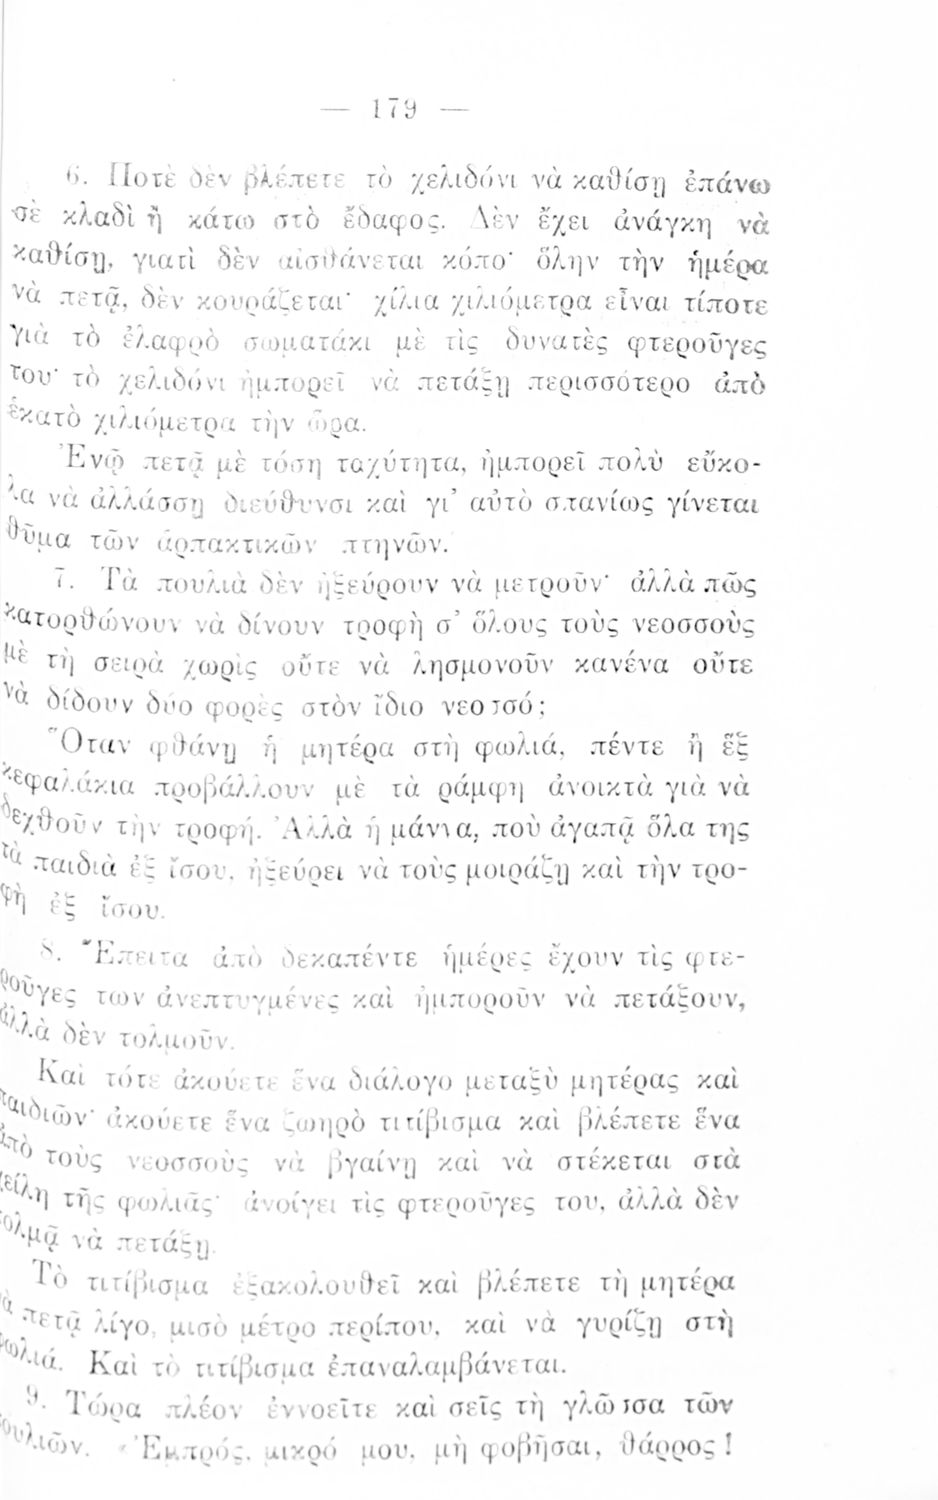 — 179 —
6. Ποτὲ δὲν βλέπετε τὸ χελιδόνι νὰ καθίσῃ ἐπάνω
σὲ κλαδὶ ἢ κάτω στὸ ἔδαφος. Δὲν ἔχει ἀνάγκη νὰ
καθίσῃ, γιατὶ δὲν αἰσθάνεται κόπο· ὅλην τὴν ἡμέρα
νὰ πετᾷ, δὲν κουράζεται· χίλια χιλιόμετρα εἶναι τίποτε
γιὰ τὸ ἐλαφρὸ σωματάκι μὲ τὶς δυνατὲς φτεροῦγες
του· τὸ χελιδόνι ἠμπορεῖ νὰ πετάξῃ περισσότερο ἀπὸ
ἑκατὸ χιλιόμετρα τὴν ὥρα.
Ἐνῷ πετᾷ μὲ τόση ταχύτητα, ἠμπορεῖ πολὺ εὔκο-
λα νὰ ἀλλάσσῃ διεύθυνσι καὶ γι’ αὐτὸ σπανίως γίνεται
θῦμα τῶν ἁρπακτικῶν πτηνῶν.
7. Τὰ πουλιὰ δὲν ἠξεύρουν νὰ μετροῦν· ἀλλὰ πῶς
κατορθώνουν νὰ δίνουν τροφὴ σ’ ὅλους τοὺς νεοσσοὺς
μὲ τὴ σειρὰ χωρὶς οὔτε νὰ λησμονοῦν κανένα οὔτε
νὰ δίδουν δυο φορὲς στὸν ἴδιο νεοσσό;
Ὅταν φθάνῃ ἡ μητέρα στὴ φωλιά, πέντε ἢ ἓξ
κεφαλάκια προβάλλουν μὲ τὰ ράμφη ἀνοικτὰ γιὰ νὰ
δεχθοῦν τὴν τροφή. Ἀλλὰ ἡ μάννα, ποὺ ἀγαπᾷ ὅλα της
τὰ παιδιὰ ἐξ ἴσου, ἠξεύρει νὰ τοὺς μοιράζῃ καὶ τὴν τρο-
φὴ ἐξ ἴσου.
8. Ἔπειτα ἀπὸ δεκαπέντε ἡμέρες ἔχουν τὶς φτε-
ροῦγες των ἀνεπτυγμένες καὶ ἠμποροῦν νὰ πετάξουν,
ἀλλὰ δὲν τολμοῦν.
Καὶ τότε ἀκούετε ἕνα διάλογο μεταξὺ μητέρας καὶ
παιδιῶν· ἀκούετε ἕνα ζωηρὸ τιτίβισμα καὶ βλέπετε ἕνα
ἀπὸ τοὺς νεοσσοὺς νὰ βγαίνῃ καὶ νὰ στέκεται στὰ
χείλη τῆς φωλιᾶς· ἀνοίγει τὶς φτεροῦγες του, ἀλλὰ δὲν
τολμᾷ νὰ πετάξῃ.
Τὸ τιτίβισμα ἐξακολουθεῖ καὶ βλέπετε τὴ μητέρα
νὰ πετᾷ λίγο, μισὸ μέτρο περίπου, καὶ νὰ γυρίζῃ στὴ
φωλιά. Καὶ τὸ τιτίβισμα ἐπαναλαμβάνεται.
9. Τώρα πλέον ἐννοεῖτε καὶ σεῖς τὴ γλῶσσα τῶν
πουλιῶν. «Ἐμπρός, μικρό μου, μὴ φοβῆσαι, θάρρος!